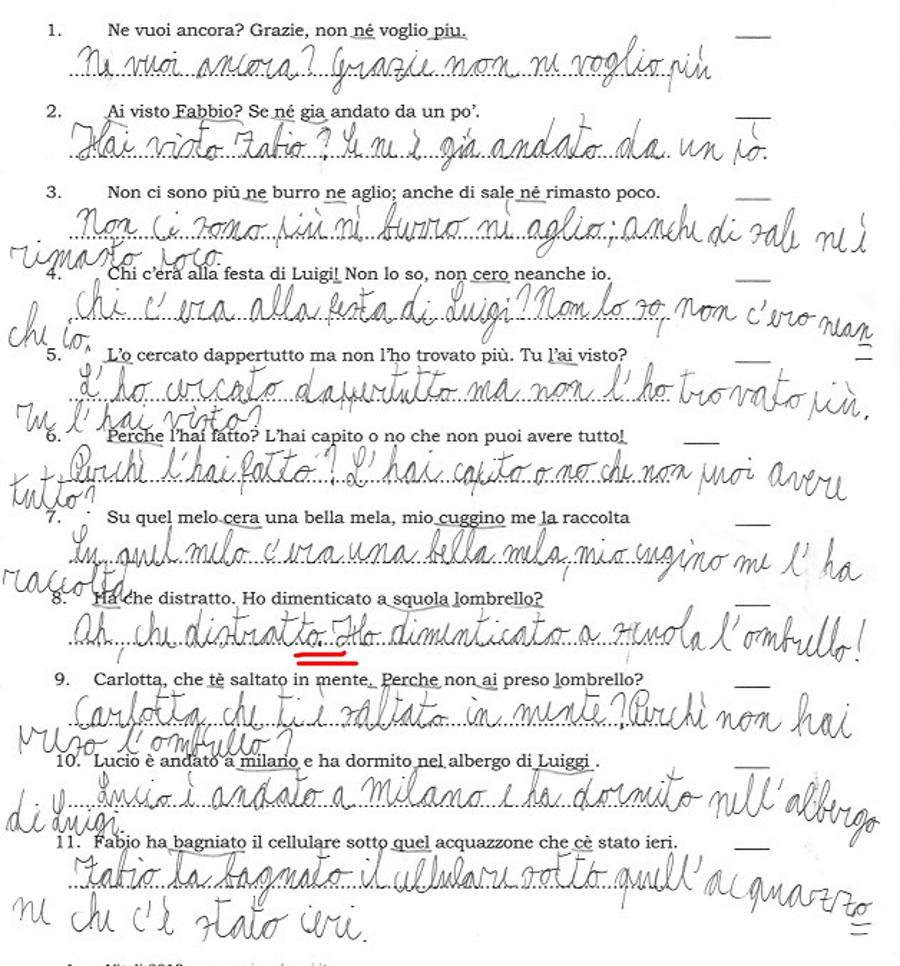 1. Ne vuoi ancora? Grazie, non né voglio piu.
Ne vuoi ancora? Grazie non ne voglio più
2. Ai visto Fabbio? Se né gia andato da un po'.
Hai visto Fabio? Se ne è già andato da un pò.
3. Non ci sono più ne burro ne aglio; anche di sale né rimasto poco.
Non ci sono più nè burro nè aglio; anche di sale ne è
rimasto poco.
4. Chi c'era alla festa di Luigi! Non lo so, non cero neanche io.
Chi c'era alla festa di Luigi? Non lo so, non c'ero nean
che io.
5. L'o cercato dappertutto ma non l'ho trovato più. Tu l'ai visto?
L'ho cercato dappertutto ma non l'ho trovato più.
Tu l'hai visto?
6. Perche l'hai fatto? L'hai capito o no che non puoi avere tutto!
Perchè l'hai fatto? L'hai capito o no che non puoi avere
tutto?
7. Su quel melo cera una bella mela, mio cuggino me la raccolta
Su quel melo c'era una bella mela, mio cugino me l'ha
raccolta.
8. Ha che distratto. Ho dimenticato a squola lombrello?
Ah, che distratto. Ho dimenticato a scuola l'ombrello!
9. Carlotta, che tè saltato in mente. Perche non ai preso lombrello?
Carlotta che ti è saltato in mente? Perchè non hai
preso l'ombrello?
10. Lucio è andato a milano e ha dormito nel albergo di Luiggi .
Lucio è andato a Milano e ha dormito nell'albergo
di Luigi.
11. Fabio ha bagniato il cellulare sotto quel acquazzone che cè stato ieri.
Fabio ha bagnato il cellulare sotto quell'acquazzo
ne che c'è stato ieri.